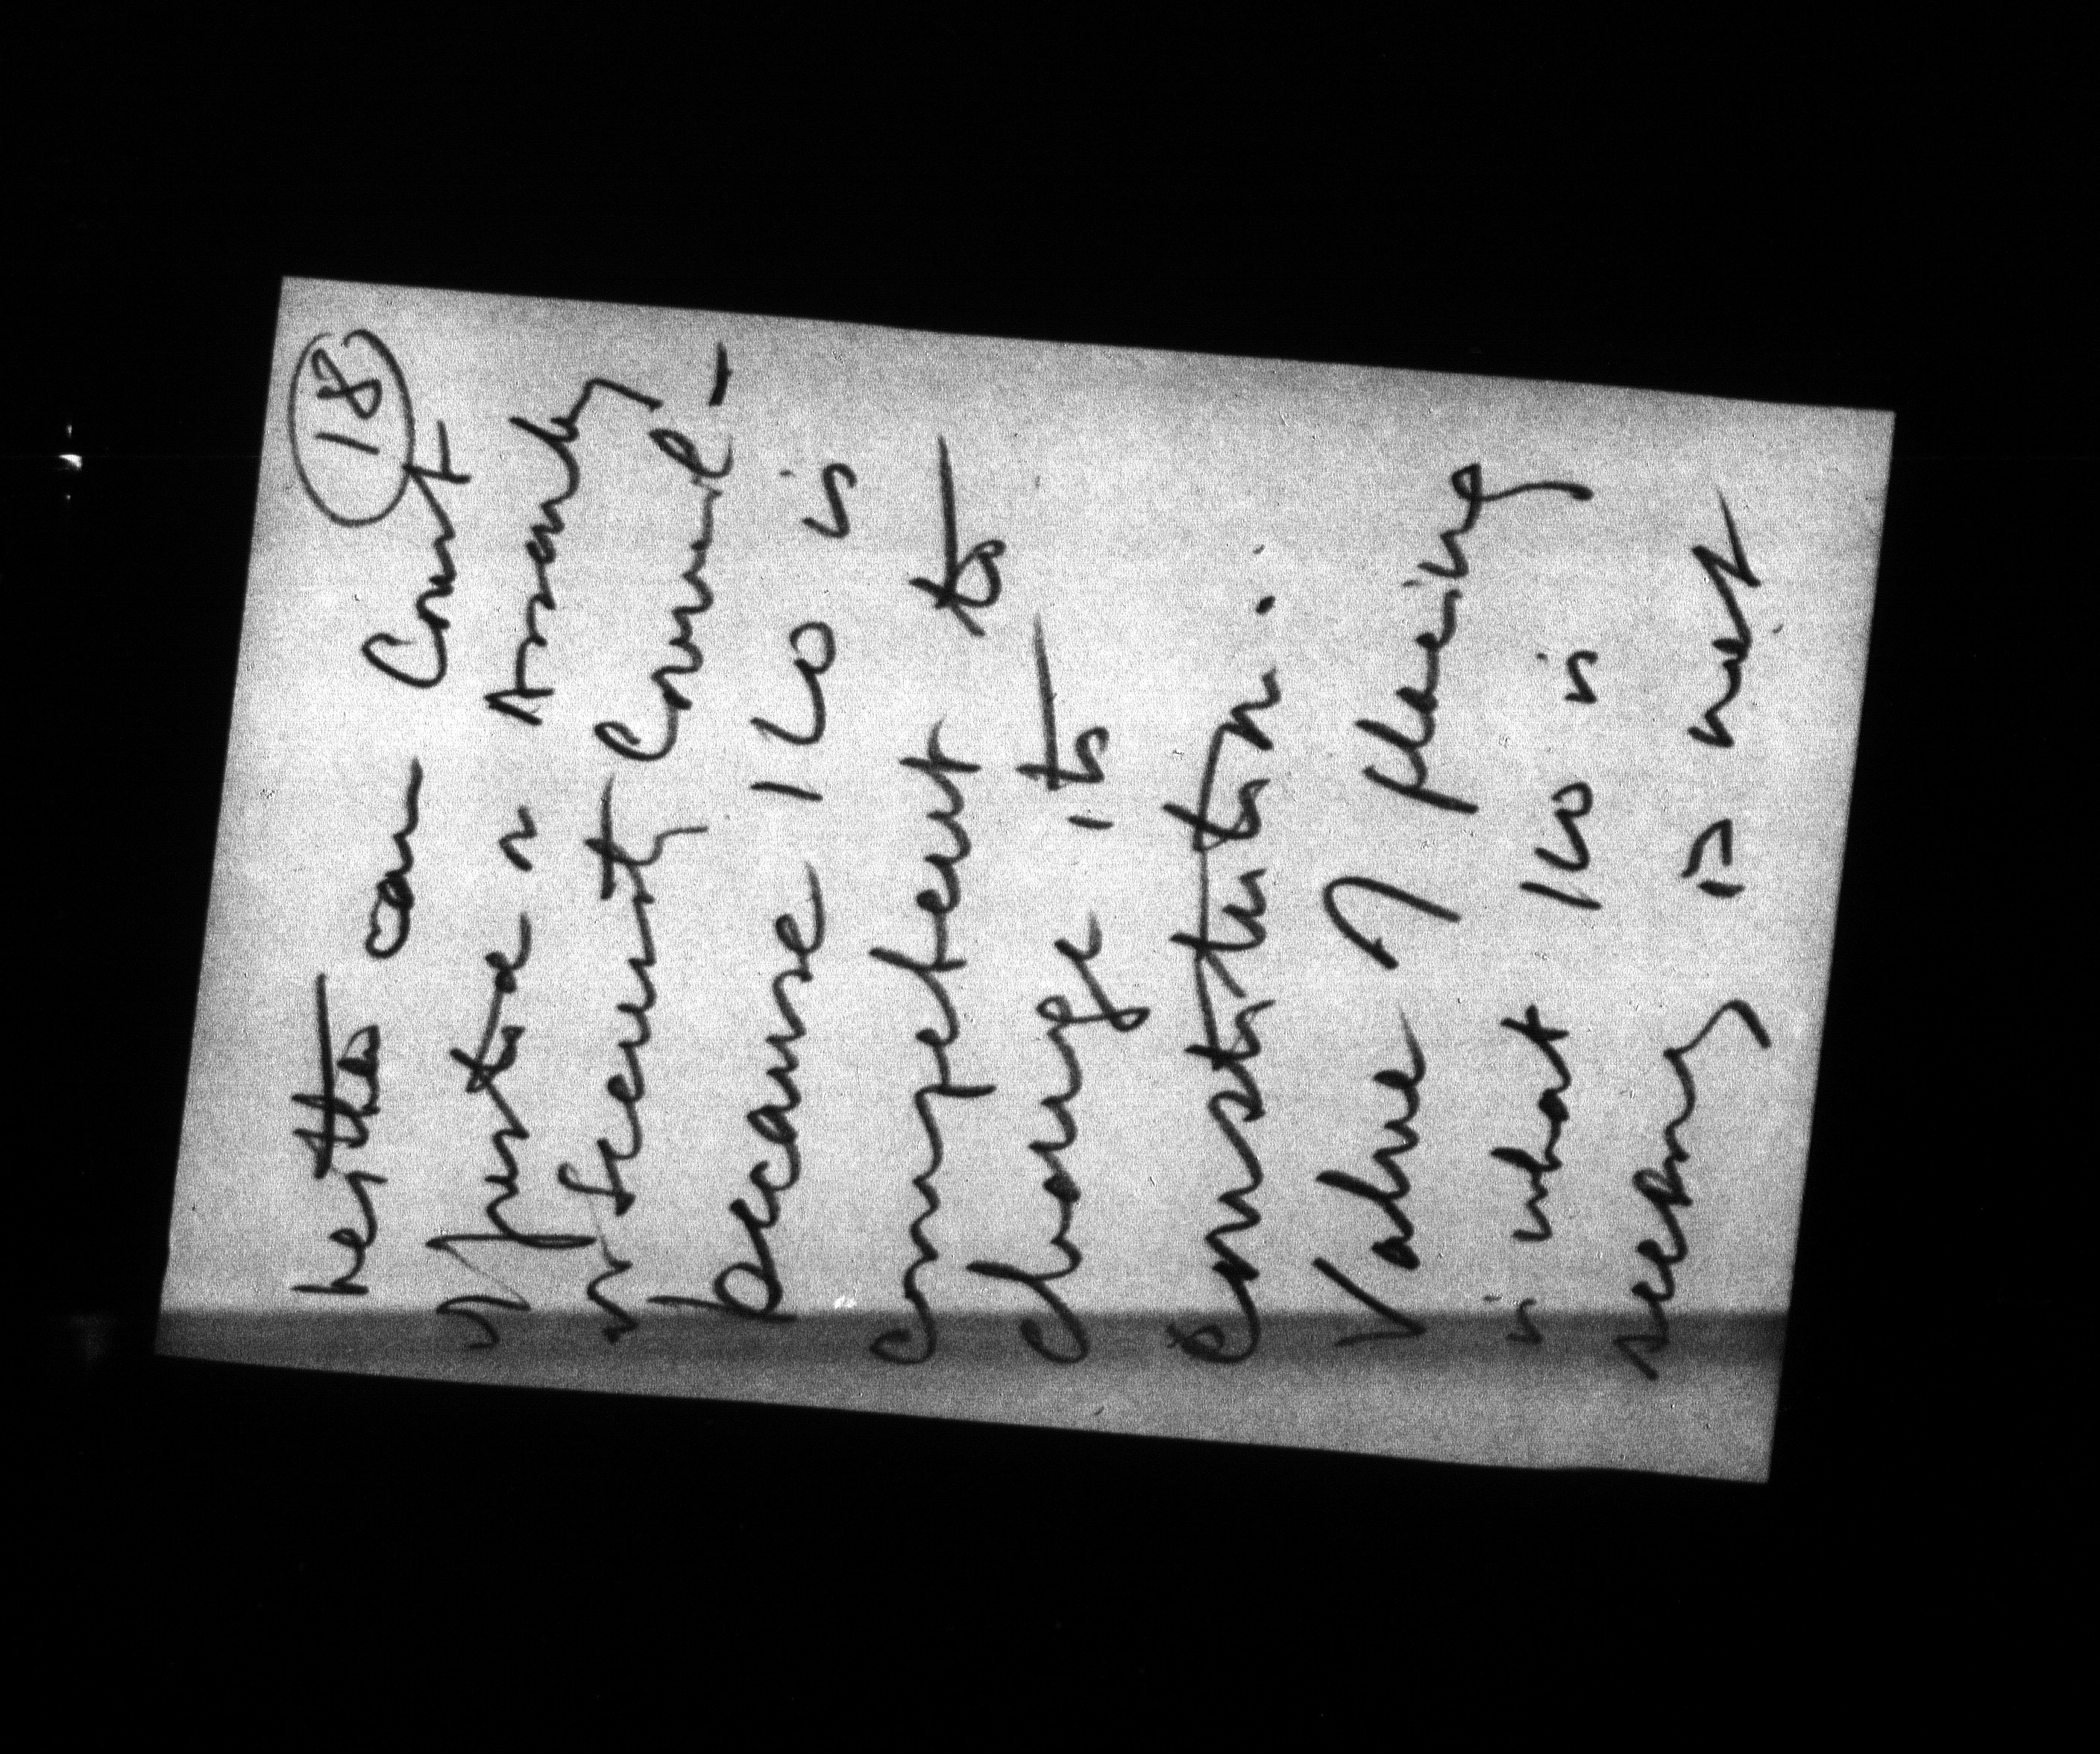 18
neither can Court
of Justice or Assembly
or Security Council –
because ICO is
competent to
change its
constitution.
Value of placing
in what ICO is
seeking is not